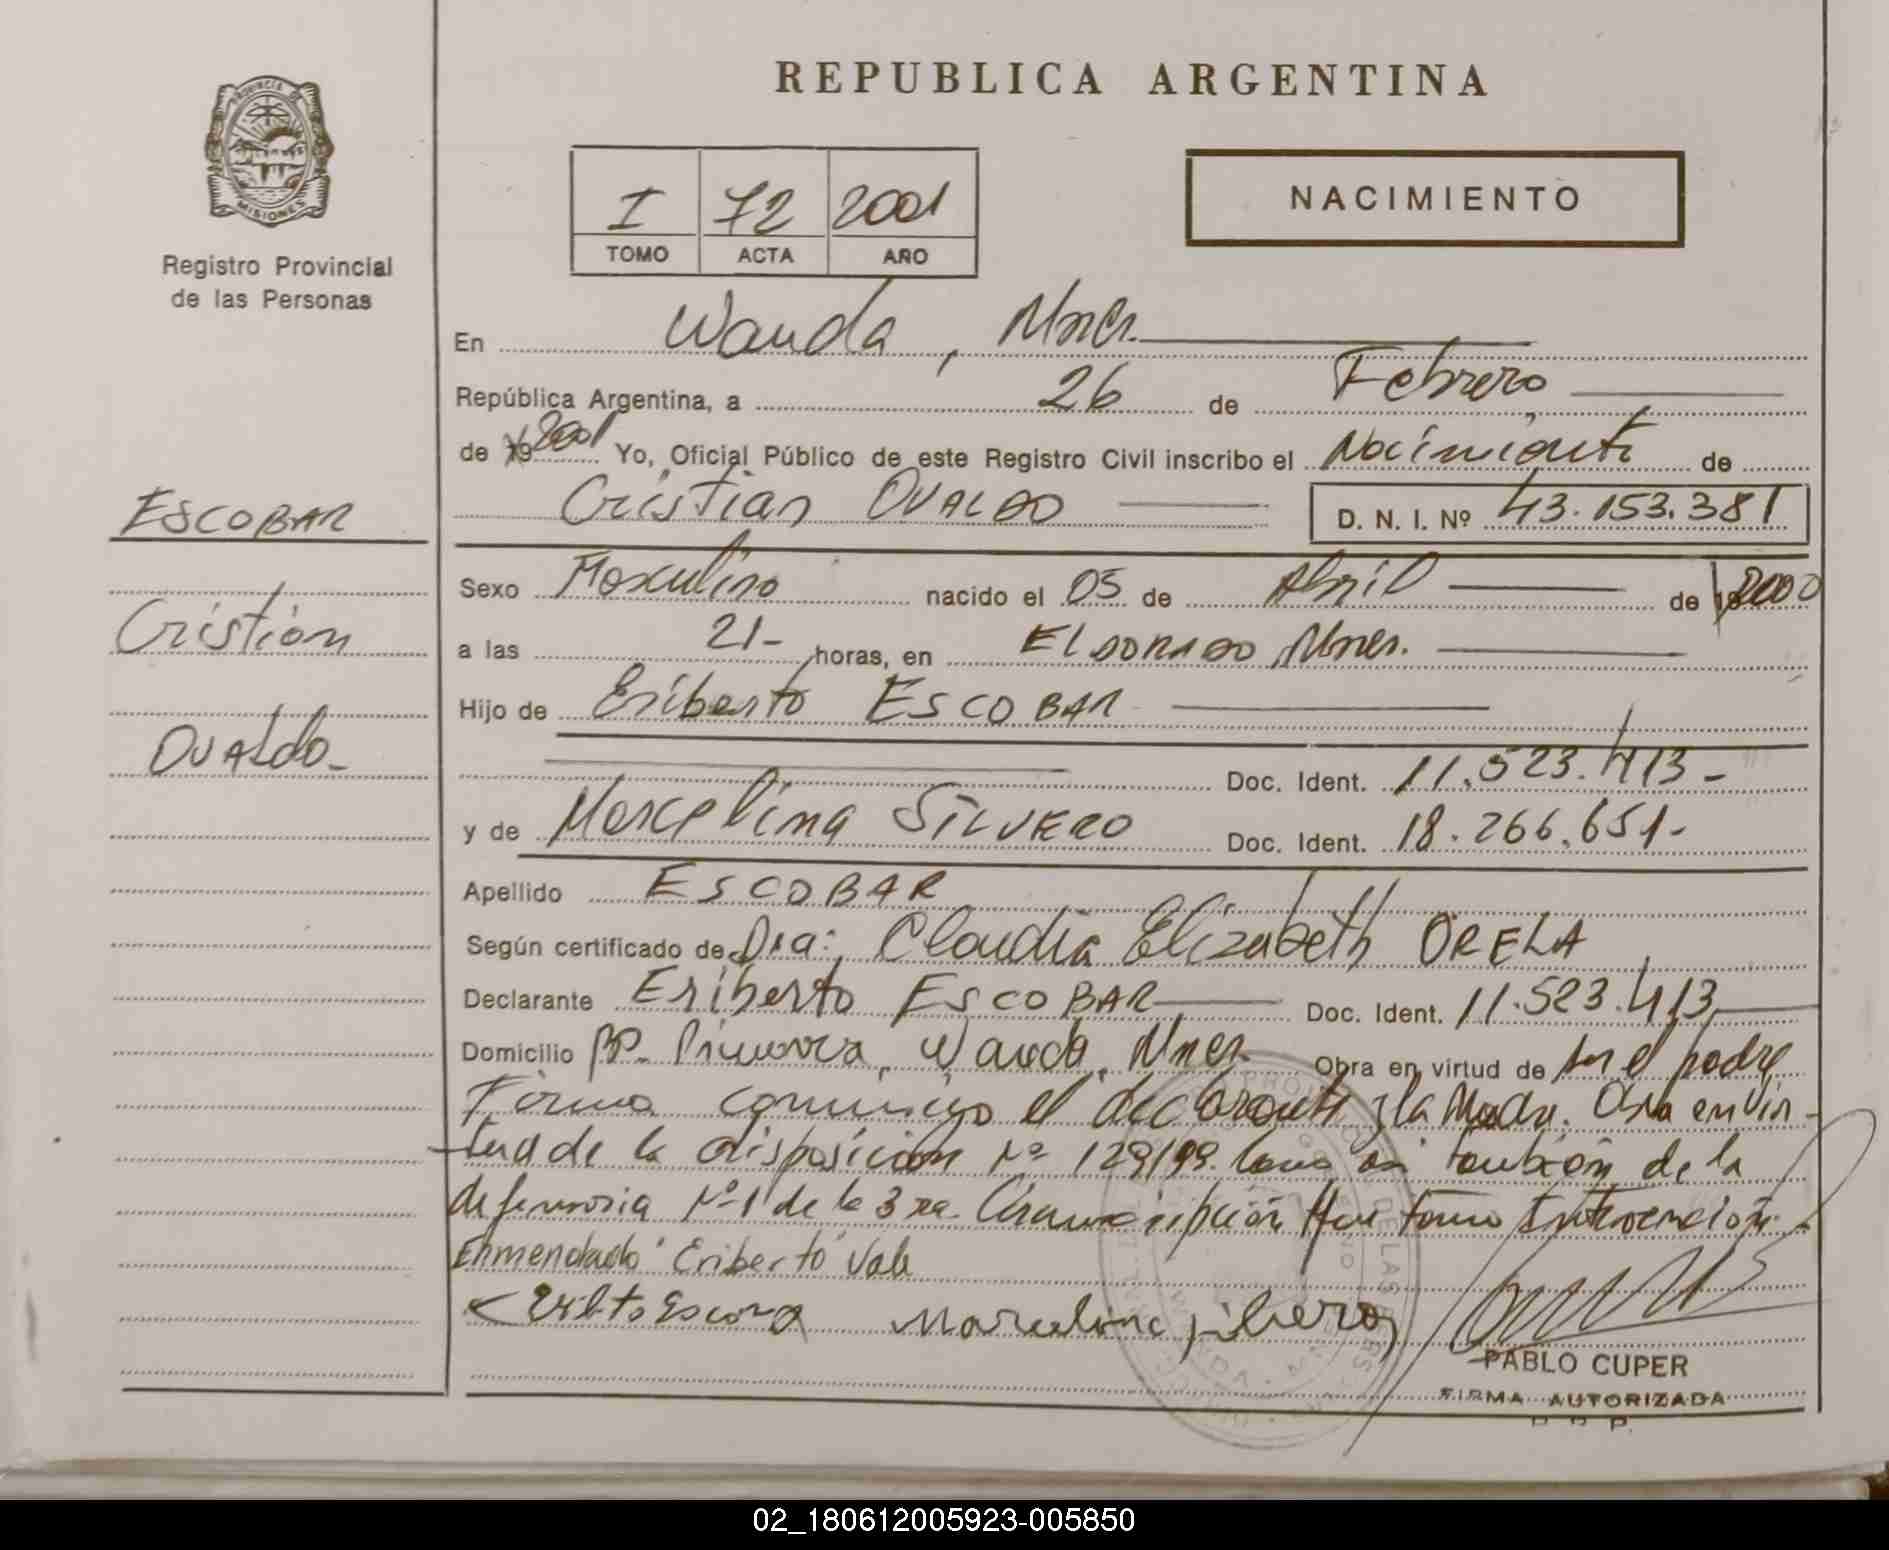 REPUBLICA ARGENTINA
PROVINCIA DE
MISIONES
Registro Provincial
de las Personas
I 72 2001
TOMO ACTA AÑO
NACIMIENTO
ESCOBAR
Cristian
Ovaldo-
En Wanda, Mnes.
República Argentina, a 26 de Febrero
de 19 2001 Yo, Oficial Público de este Registro Civil inscribo el Nacimiento de
Cristian OVALDO D. N. I. Nº 43.153.381
Sexo Masculino nacido el 05 de Abril de 19 2000
a las 21- horas, en ELDORADO Mnes.
Hijo de Eriberto ESCOBAR
Doc. Ident. 11.523.413-
y de Marcelina SILVERO Doc. Ident. 18.266.651-
Apellido ESCOBAR
Según certificado de Dra: Claudia Elizabeth ORELA
Declarante Eriberto ESCOBAR Doc. Ident. 11.523.413
Domicilio Bº. Primavera, Wanda, Mnes. Obra en virtud de ser el padre
Firma conmigo el declarante y la Madre. Obra en vir-
tud de la disposición Nº 129/99. Como así también de la
defensoria Nº 1 de la 3ra. Circunscripción que tomo Intervención.
Enmendado "Eriberto" Vale
Marcelina silvero
PABLO CUPER
FIRMA AUTORIZADA
02_180612005923-005850